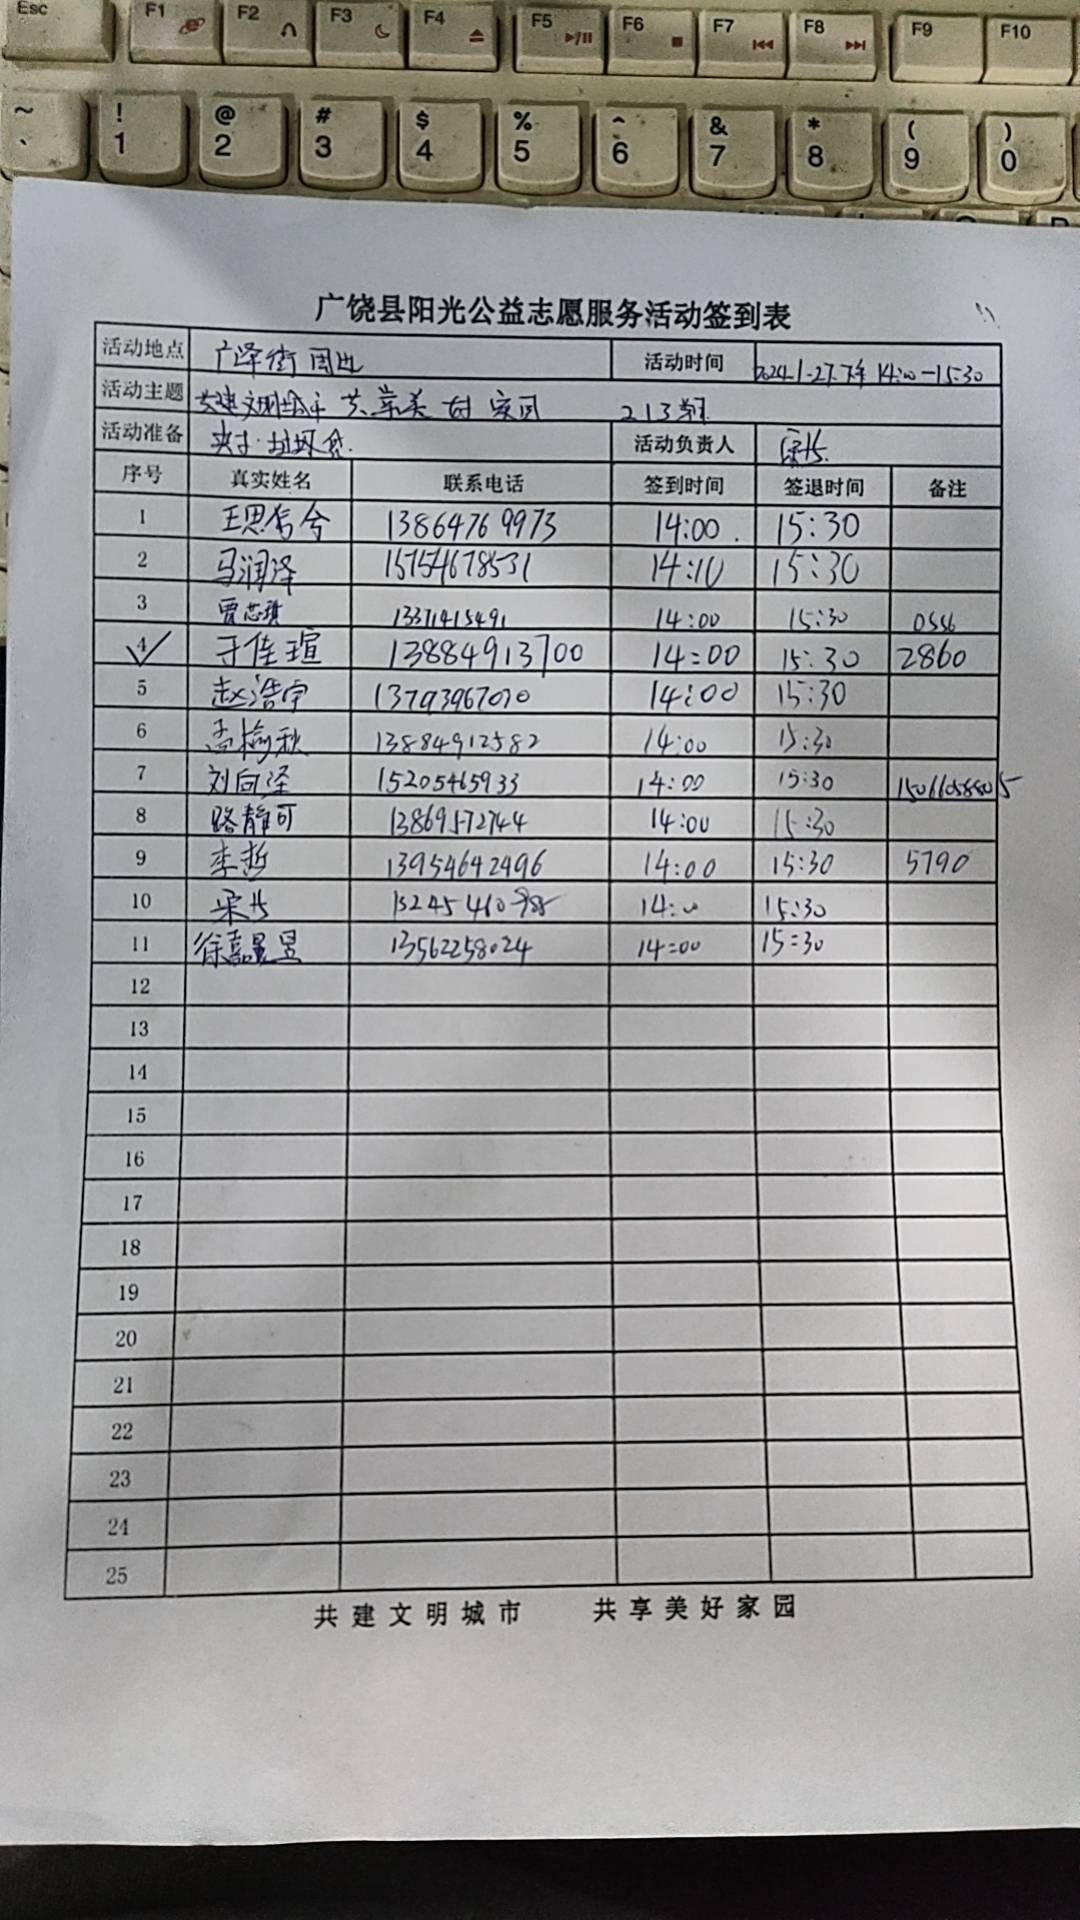 Esc F1 F2 F3 F4 F5 F6 F7 F8 F9 F10
~ ! @ # $ % ^ & * ( )
` 1 2 3 4 5 6 7 8 9 0
广饶县阳光公益志愿服务活动签到表
活动地点 广泽街周边 活动时间 2024.1.27.下午14:00-15:30
活动主题 共建文明城市 共享美好家园 213期
活动准备 夹子.垃圾袋. 活动负责人
序号 真实姓名 联系电话 签到时间 签退时间 备注
1 13864769973 14:00 15:30
2 马润泽 15754678531 14:10 15:30
3 贾志琪 13371415491 14:00 15:30 0556
4 于佳瑄 13884913700 14:00 15:30 2860
5 赵浩宇 13793967070 14:00 15:30
6 孟榆秋 13884912582 14:00 15:30
7 刘向泽 15205465933 14:00 15:30 15066058805
8 路静可 13869572744 14:00 15:30
9 李哲 13954642496 14:00 15:30 5790
10 14:00 15:30
11 13562258024 14:00 15:30
12
13
14
15
16
17
18
19
20
21
22
23
24
25
共建文明城市 共享美好家园